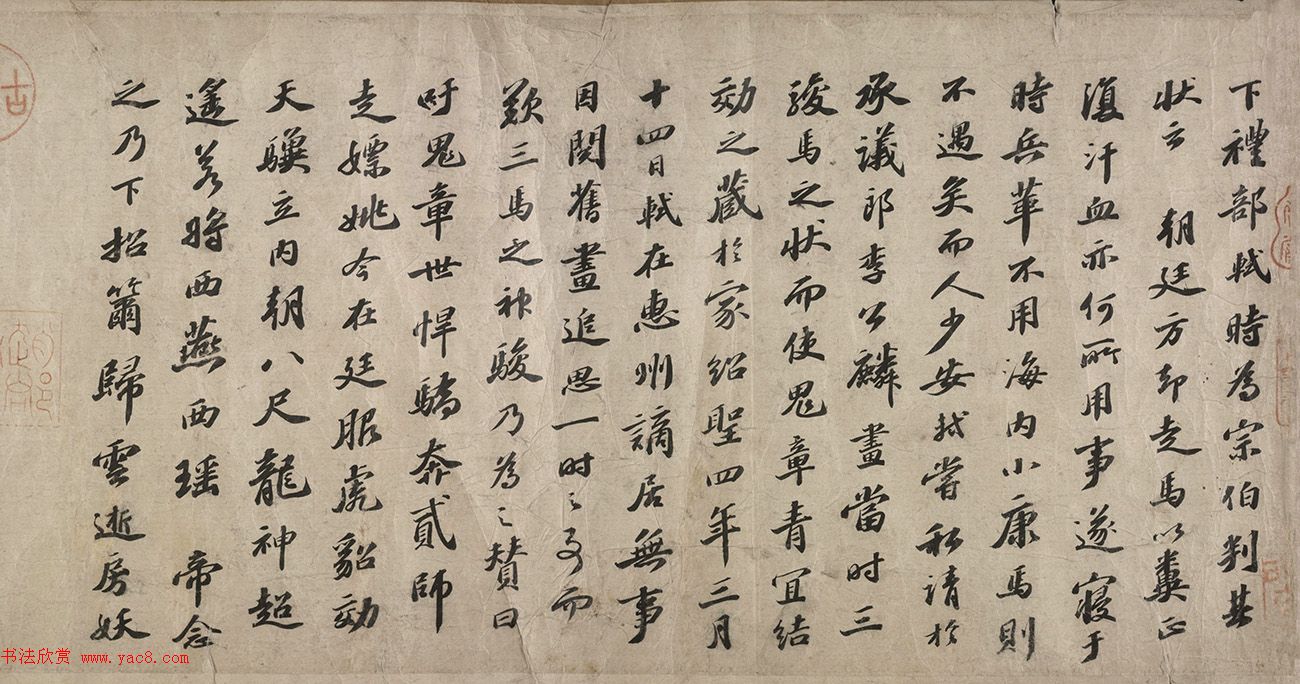 下禮部軾時為宗伯判其
狀云 朝廷方却走馬以糞正
復汗血亦何所用事遂寢于
時兵革不用海内小康馬則
不遇矣而人少安軾嘗私請於
承議郎李公麟畫當时三
駿馬之狀而使鬼章青宜結
効之藏於家紹聖四年三月
十四日軾在惠州謫居無事
因閱舊畫追思一时之事而
歎三馬之神駿乃為之贊曰
吁鬼章世悍驕奔貳師
走嫖姚今在廷服虎貂効
天驥立内朝八尺龍神超
遙若將西燕西瑶 帝念
之乃下招籋歸雲逝房妖
古
书法欣赏 www.yac8.com